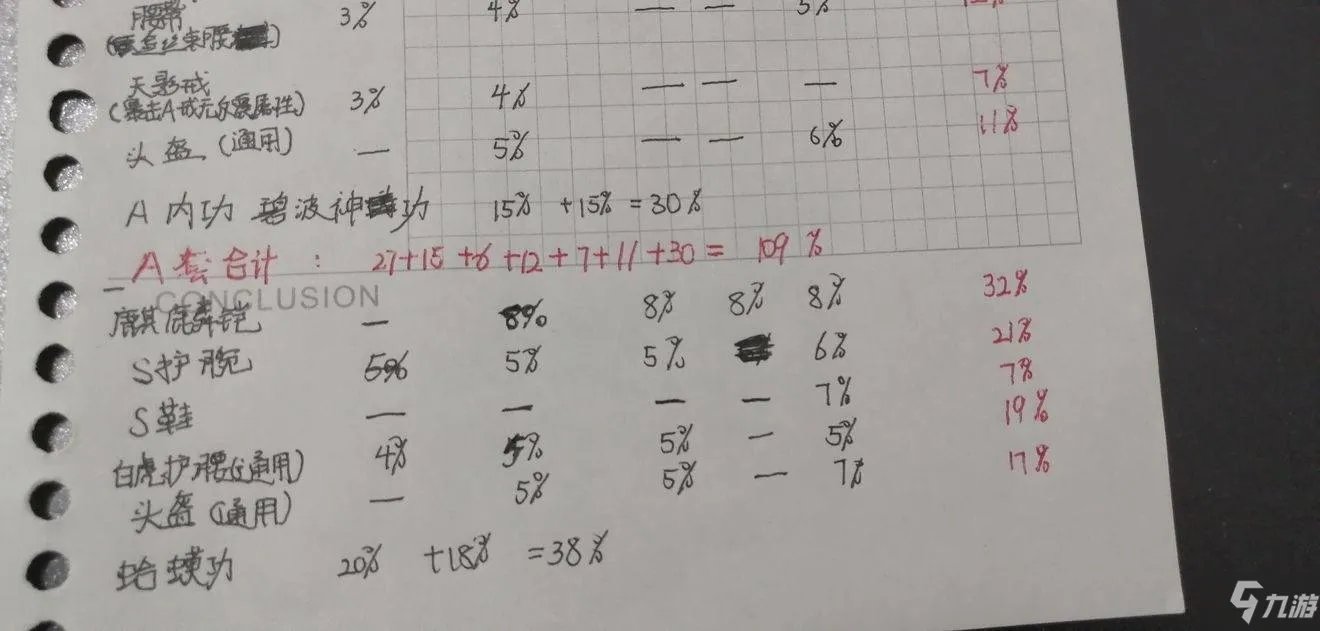 腰带 3% 4% — — 5% 12%
束腰
天影戒 3% 4% — — — 7%
(暴击A或元尔震属性)
头盔(通用) — 5% — — 6% 11%
A内功 碧波神功 15% +15% = 30%
A套合计: 27+15+6+12+7+11+30= 109%
CONCLUSION
麒麟铠 — 8% 8% 8% 8% 32%
S护腕 5% 5% 5% 6% 21%
S鞋 — — — — 7% 7%
白虎护腰(通用) 4% 5% 5% — 5% 19%
头盔(通用) — 5% 5% — 7% 17%
蛤蟆功 20% +18% =38%
九游